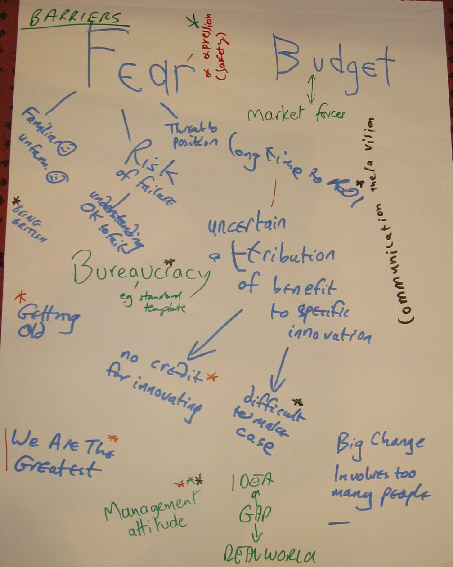 BARRIERS
Fear
of expression
(safety)
Budget
Market forces
Familiar
unfam.
Threat to
position
Risk
of failure
understanding
OK to fail
BEING
BRITISH
Long time to
uncertain
attribution
of benefit
to specific
innovation
Communication the/a vision
Bureaucracy
eg standard
template
Getting
Old
no credit
for innovating
difficult
to make
case
We Are The
Greatest
Management
attitude
IDEA
GAP
REAL WORLD
Big Change
Involves too
many people